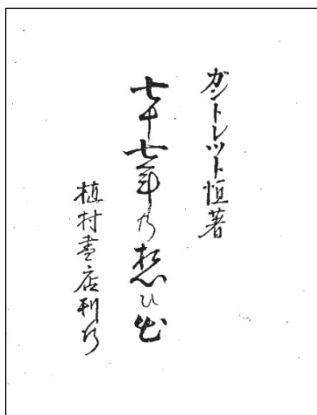 ガントレット恒著
七十七年の想ひ出
植村書店刊行